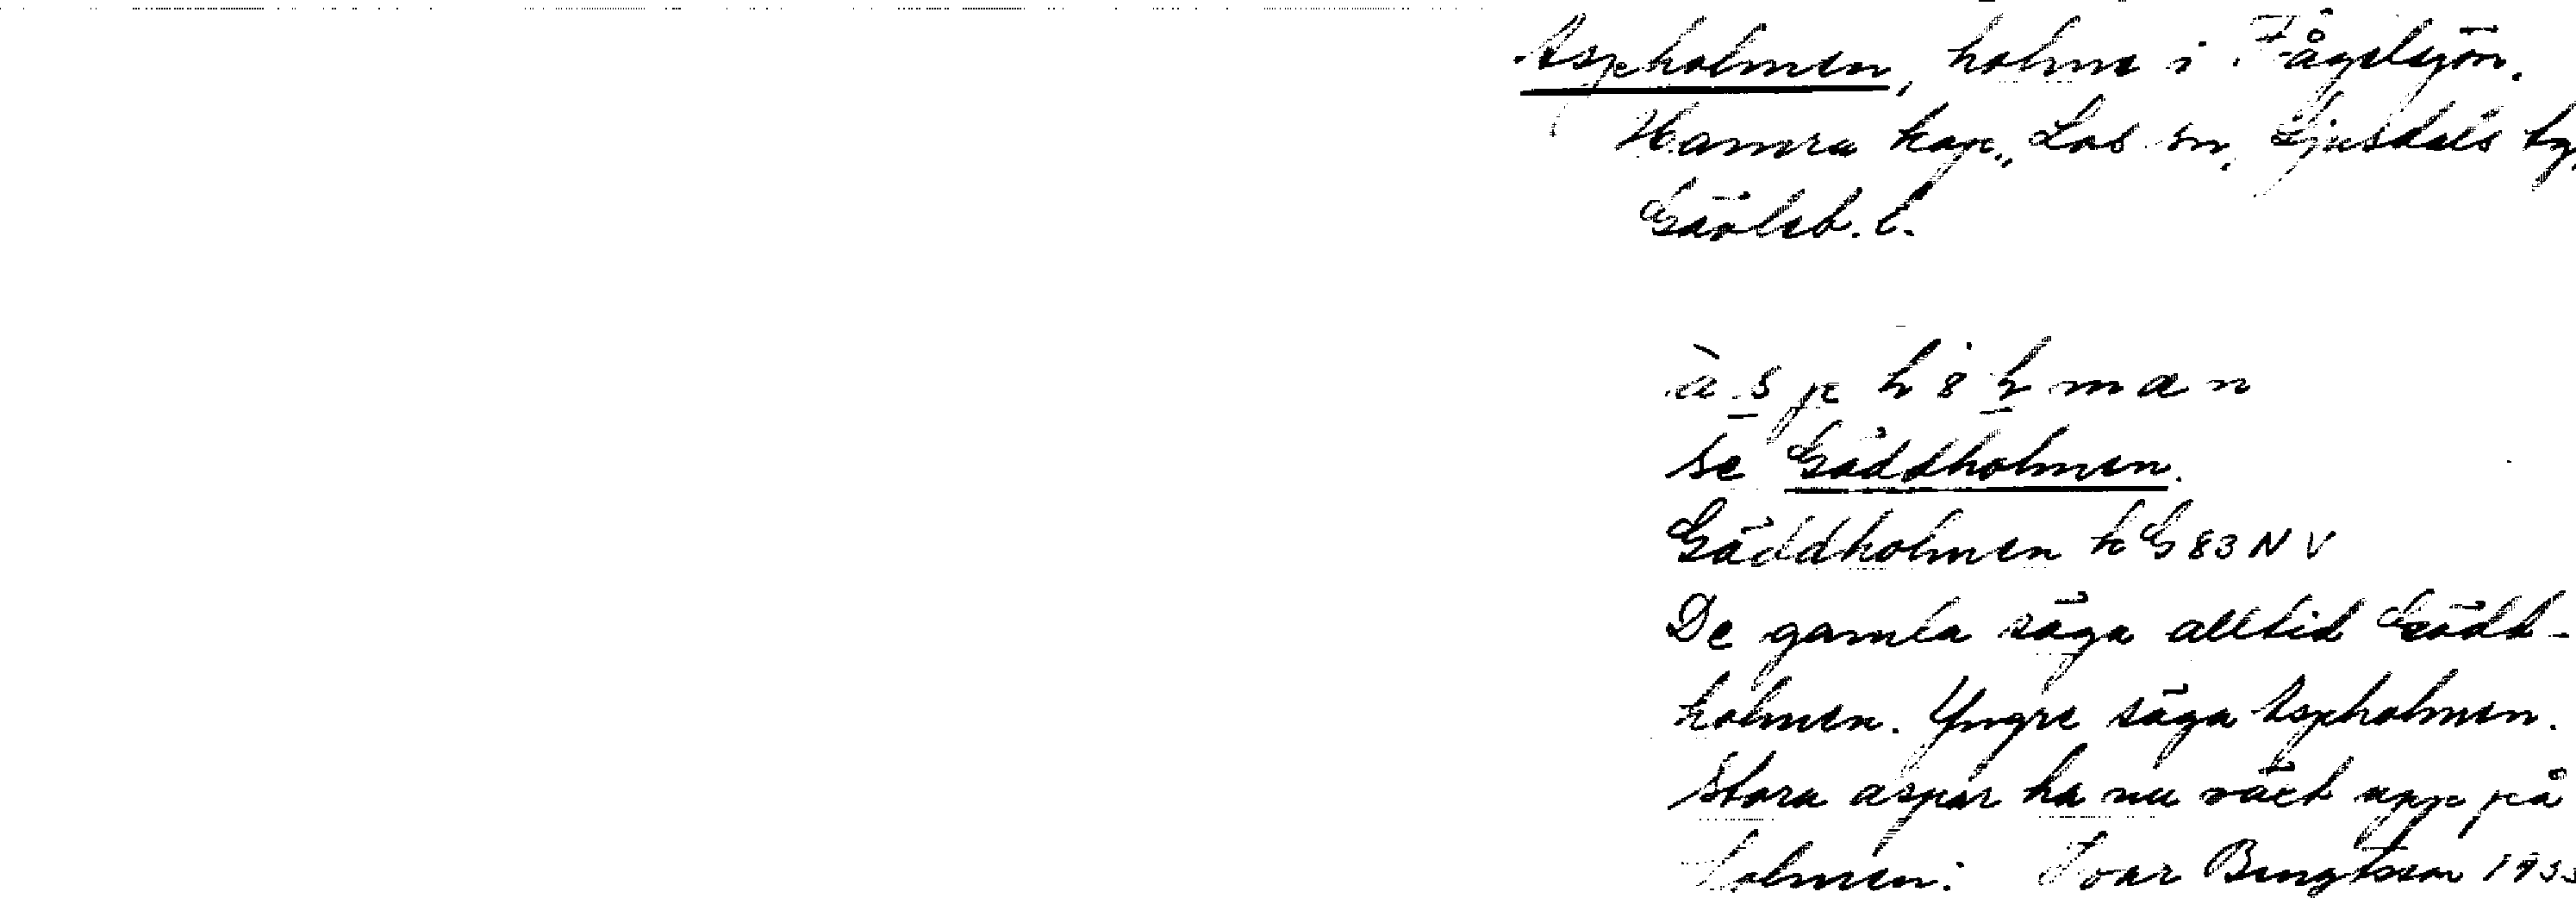 Aspholmen, holme i Fågelsjön.
Hamra kap., Los sn, Ljusdals tg,
Gävleb. l.
se Gäddholmen.
Gäddholmen k G 83 NV
De gamla säga alltid Gädd-
holmen. Yngre säga Aspholmen.
Stora aspar ha nu växt upp på
holmen. Ivar Bengtsson 1933